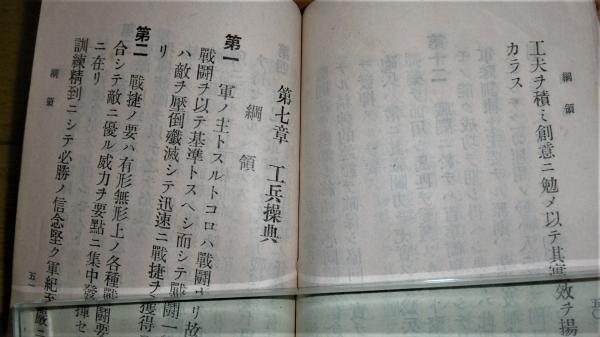 綱領
工夫ヲ積ミ創意ニ勉メ以テ其實效ヲ揚
カラス
第七章 工兵操典
綱領
第一 軍ノ主トスルトコロハ戰鬪ナリ故
戰鬪ヲ以テ基準トスヘシ而シテ戰鬪一
ハ敵ヲ壓倒殲滅シテ迅速ニ戰捷ヲ獲得
リ
第二 戰捷ノ要ハ有形無形上ノ各種戰鬪要
合シテ敵ニ優ル威力ヲ要點ニ集中發揮セ
ニ在リ
訓練精到ニシテ必勝ノ信念堅ク軍紀至嚴ニ
綱領
五一